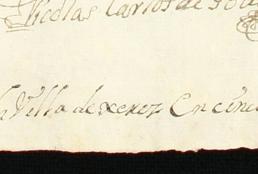 Nicolas Carlos de
la Villa de xerez En cinco